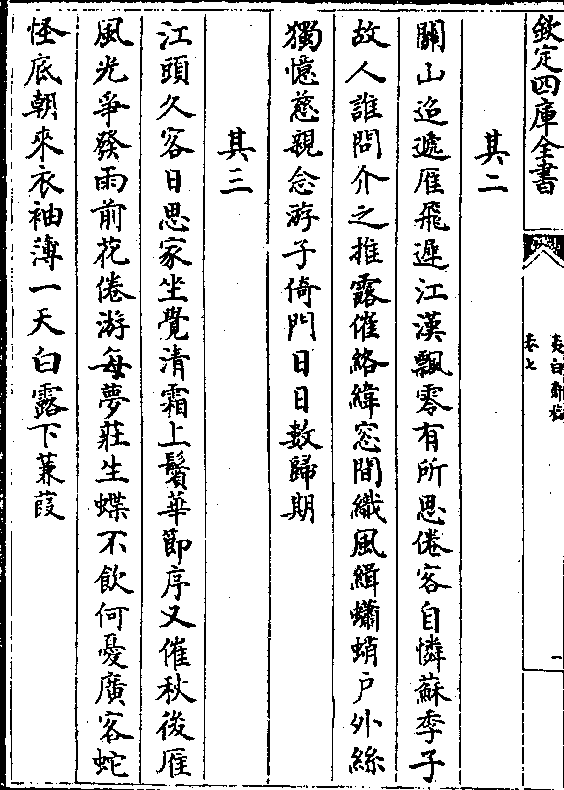 欽定四庫全書
夷白齋稿
卷七
一
其二
關山迢遞雁飛遲江漢飄零有所思倦客自憐蘇季子
故人誰問介之推露催絡緯窓間織風緝蠨蛸户外絲
獨憶慈親念游子倚門日日數歸期
其三
江頭久客日思家坐覺清霜上鬢華節序又催秋後雁
風光爭發雨前花倦游每夢莊生蝶不飲何憂廣客蛇
怪底朝來衣袖薄一天白露下蒹葭